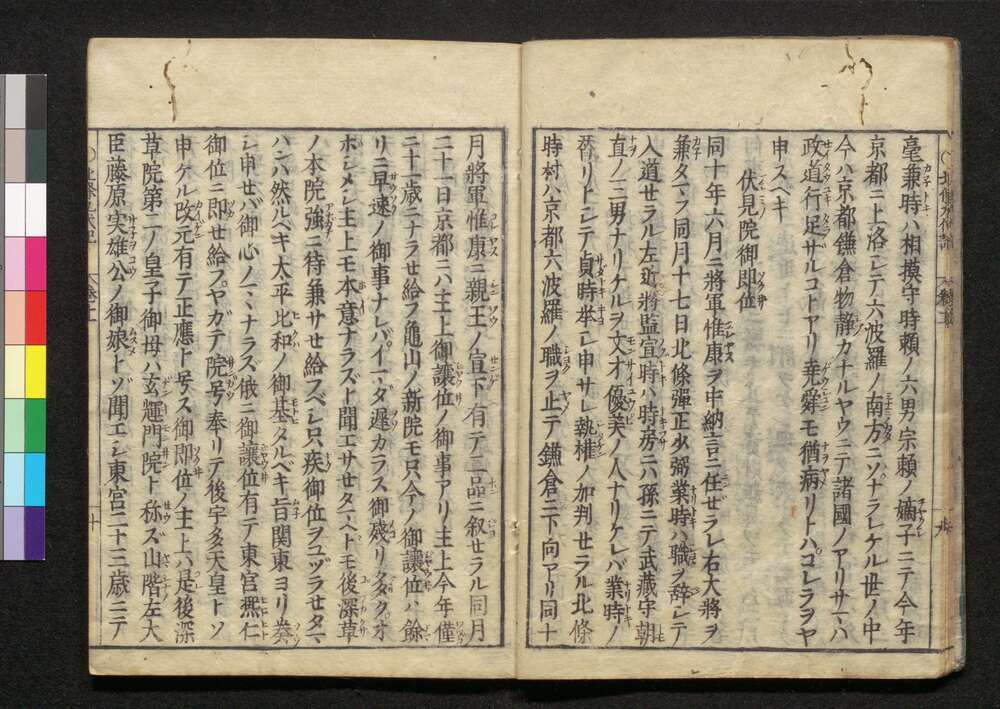 毫兼時ハ相摸守時頼ノ六男宗頼ノ嫡子ニテ今年
京都ニ上洛シテ六波羅ノ南方ニソナラレケル世ノ中
今ハ京都鎌倉物静カナルヤウニテ諸國ノアリサマハ
政道行足ザルコトアリ堯舜モ猶病リトハコレラヲヤ
申スベキ
伏見院御即位
同十年六月ニ將軍惟康ヲ中納言ニ任ぜラレ右大將ヲ
兼タマフ同月十七日北條彈正少弼業時ハ職ヲ辞シテ
入道セラル左近將監宣時ハ時房ニハ孫ニテ武藏守朝
直ノ三男ナリケルヲ文才優美ノ人ナリケレバ業時ノ
替リトシテ貞時挙シ申サレ執権ノ加判セラル北條
時村ハ京都六波羅ノ職ヲ止テ鎌倉ニ下向アリ同十
月將軍惟康ニ親王ノ宣下有テ二品ニ叙セラル同月
二十一日京都ニハ主上御讓位ノ御事アリ主上今年僅
二十一歳ニナラせ給フ亀山ノ新院モ只今ノ御讓位ハ餘
リニ早速ノ御事ナレバイマダ遅カラス御殘リタヽクオ
ホシメシ主上モ本意ナラズト聞エサせタマヘトモ後深草
ノ本院強ニ待兼サせ給フベシ只疾御位ヲユヅラせタマ
ハンハ然ルベキ太平比和ノ御基タルベキ旨関東ヨリ奏
シ申せバ御心ノマヽナラス俄ニ御讓位有テ東宮熈仁
御位ニ即せ給フヤガテ院号奉リテ後宇多天皇トソ
申ケル改元有テ正應ト号ス御即位ノ主上ハ是後深
草院第二ノ皇子御母ハ玄輝門院ト称ズ山階左大
臣藤原実雄公ノ御娘トゾ聞エシ東宮二十三歳ニテ